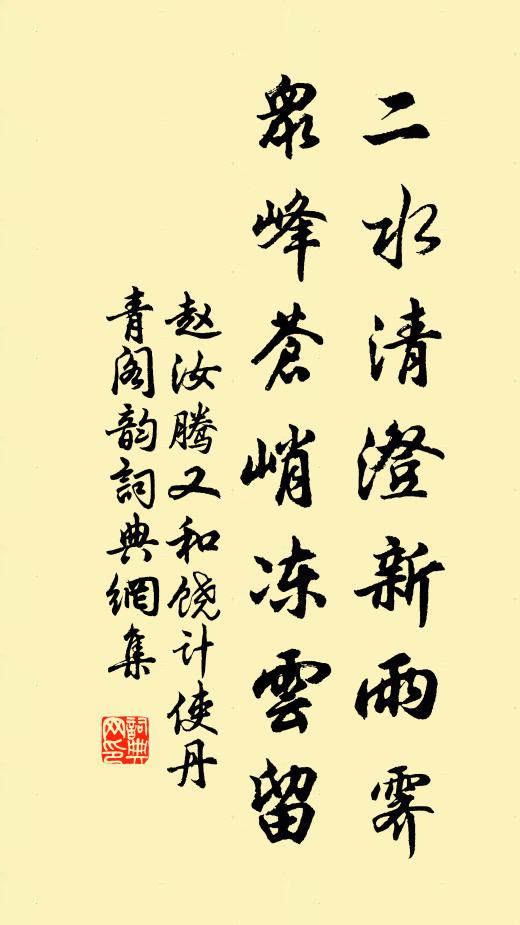 二水清澄新雨霁
眾峰蒼峭冻雲留
赵汝腾又和饶计使丹
青阁韵詞典網集
詞典网印